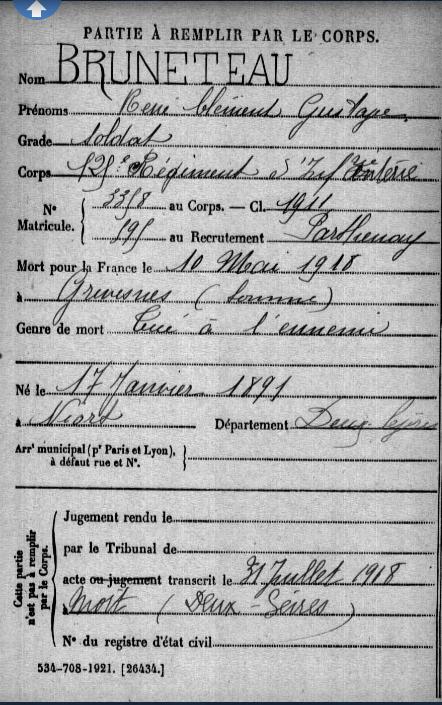 PARTIE À REMPLIR PAR LE CORPS.
Nom BRUNETEAU
Prénoms René Clément Gustave
Grade soldat
Corps 125e Régiment d'Infanterie
No Matricule. { 3358 au Corps. — Cl. 1911
195 au Recrutement Parthenay
Mort pour la France le 10 Mai 1918
à Grivesnes (Somme)
Genre de mort Tué à l'ennemi
Né le 17 Janvier 1891
à Niort Département Deux-Sèvres
Arrt municipal (pr Paris et Lyon), à défaut rue et No. }
Cette partie n'est pas à remplir par le Corps. {
Jugement rendu le
par le Tribunal de
acte ou jugement transcrit le 31 Juillet 1918
à Niort (Deux-Sèvres)
No du registre d'état civil
534-708-1921. [26434.]